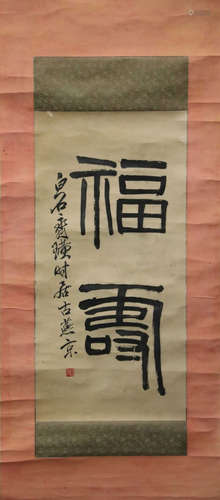 福壽
白石齊璜時居古燕京